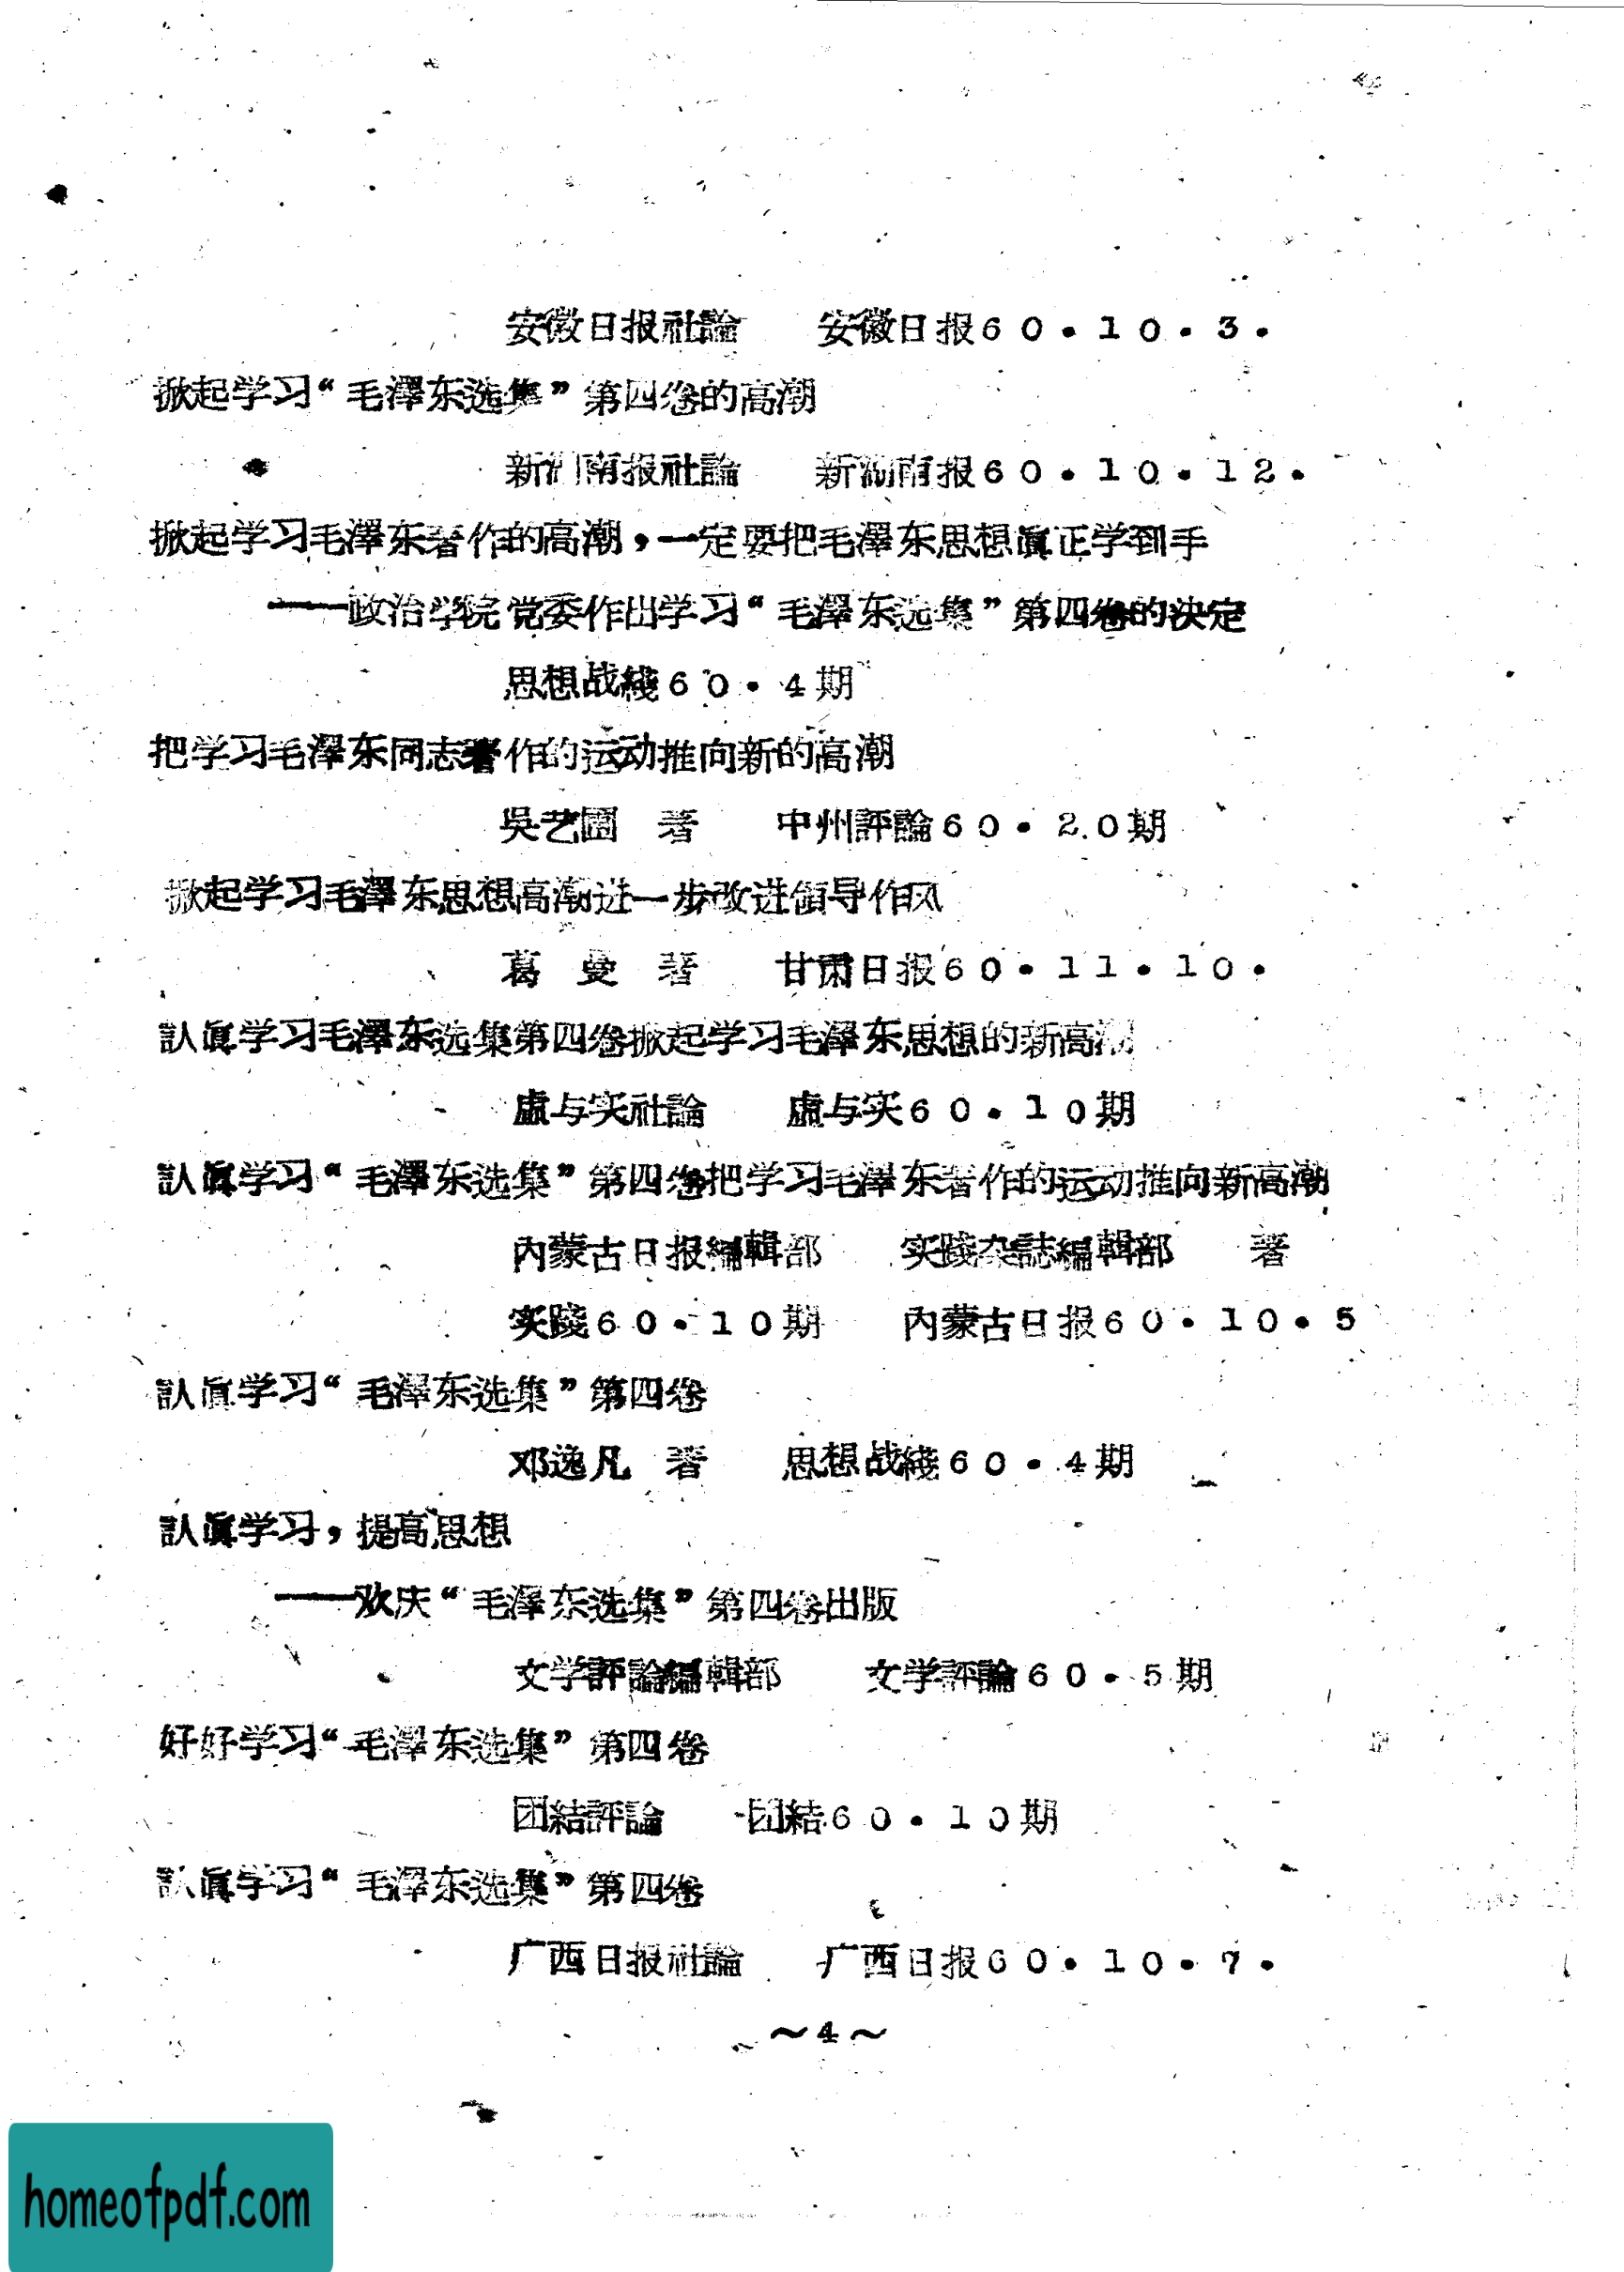 安徽日报社論　　安徽日报60·10·3·
掀起学习“毛澤东选集”第四卷的高潮
新湖南报社論　　新湖南报60·10·12·
掀起学习毛澤东著作的高潮，一定要把毛澤东思想眞正学到手
——政治学院党委作出学习“毛澤东选集”第四卷的决定
思想战綫60·4期
把学习毛澤东同志著作的运动推向新的高潮
吳艺圃　著　　中州評論60·20期
掀起学习毛澤东思想高潮进一步改进領导作风
葛　曼　著　　甘肃日报60·11·10·
認眞学习毛澤东选集第四卷掀起学习毛澤东思想的新高潮
虛与实社論　　虛与实60·10期
認眞学习“毛澤东选集”第四卷把学习毛澤东著作的运动推向新高潮
內蒙古日报編輯部　　实踐杂誌編輯部　　著
实踐60·10期　　內蒙古日报60·10·5
認眞学习“毛澤东选集”第四卷
邓逸凡　著　　思想战綫60·4期
認眞学习，提高思想
——欢庆“毛澤东选集”第四卷出版
文学評論編輯部　　文学評論60·5期
好好学习“毛澤东选集”第四卷
团結評論　　团結60·10期
認眞学习“毛澤东选集”第四卷
广西日报社論　　广西日报60·10·7·
～4～
homeofpdf.com